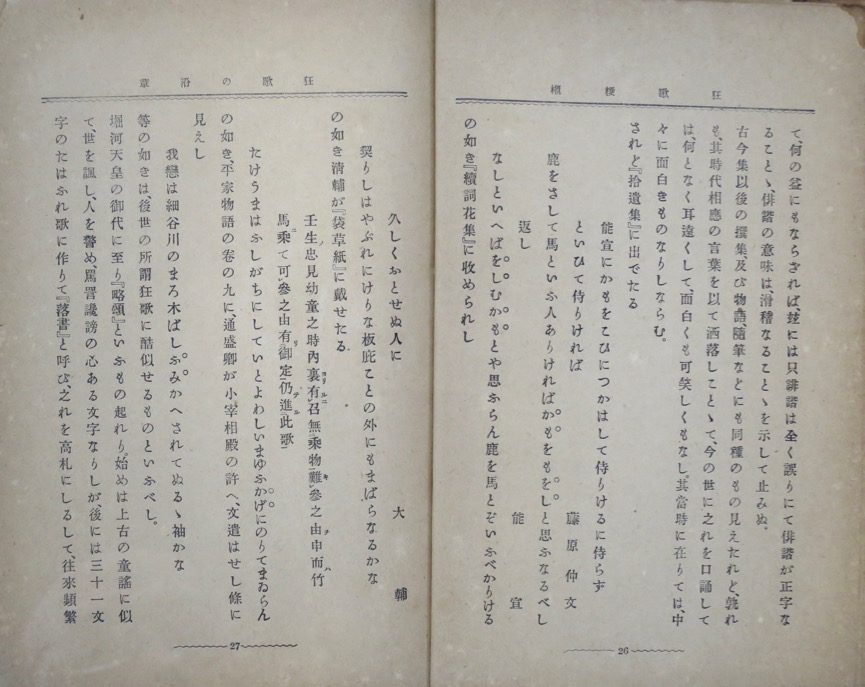 狂歌梗概
て、何の益にもならざれば、玆には只誹諧は全く誤りにて俳諧が正字な
ること、俳諧の意味は、滑稽なることゝを示して止みぬ。
古今集以後の撰集、及び物語、隨筆などにも同種のもの見えたれど、孰れ
も、其時代相應の言葉を以て洒落しことゝて、今の世に之れを口誦して
は、何となく耳遠くして、面白くも可笑しくもなし。其當時に在りては、中
々に面白きものなりしならむ。
されど『拾遺集』に出でたる
能宣にかもをこひにつかはして侍りけるに侍らず
といひて侍りければ
藤原仲文
鹿をさして馬といふ人ありければかもをもをしと思ふなるべし
返し
能宣
なしといへばをしむかもとや思ふらん鹿を馬とぞいふべかりける
の如き『續詞花集』に收められし
26
狂歌の沿革
久しくおとせぬ人に
大輔
契りしはやぶれにけりな板庇ことの外にもまばらなるかな
の如き淸輔が『袋草紙』に戴せたる
壬生忠見幼童之時內裏有召無乘物難參之由申而竹
馬乘て可參之由有御定仍進此歌
たけうまはふしがちにしていとよわしいまゆふかげにのりてまゐらん
の如き、平家物語の卷の九に、通盛卿が小宰相殿の許へ、文遣はせし條に
見えし
我戀は細谷川のまろ木ばしふみかへされてぬるゝ袖かな
等の如きは、後世の所謂狂歌に酷似せるものといふべし。
堀河天皇の御代に至り『略頌』といふもの起れり。始めは上古の童謠に似
て、世を諷し、人を警め、罵詈讒謗の心ある文字なりしが、後には三十一文
字のたはふれ歌に作りて『落書』と呼び、之れを高札にしるして、往來頻繁
27